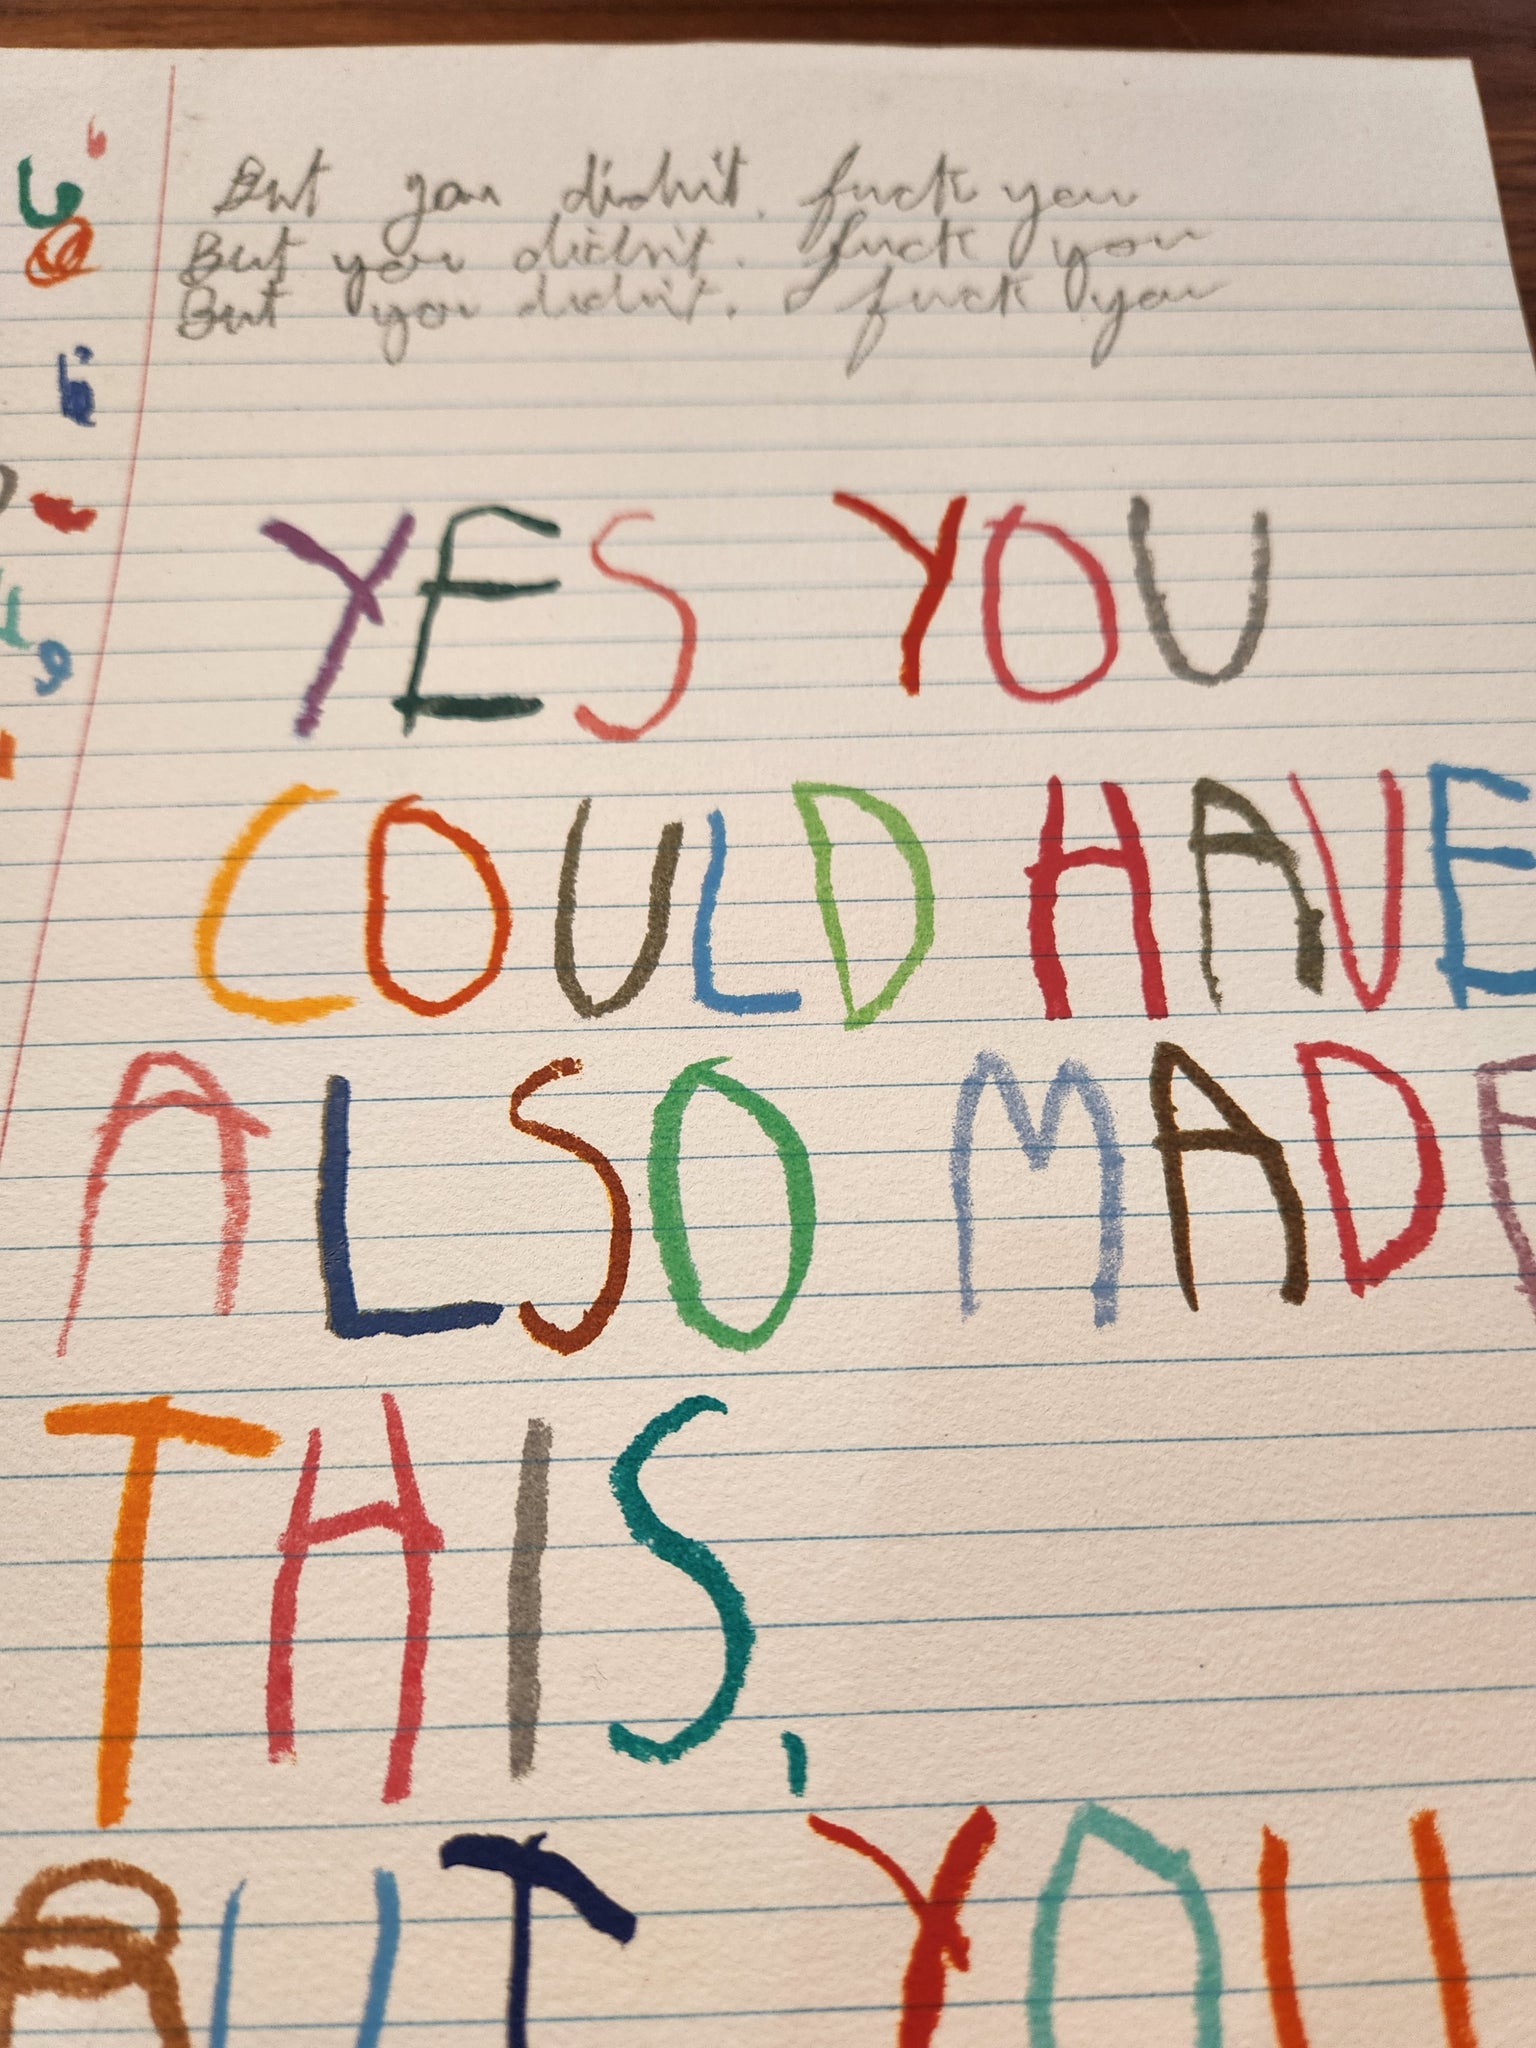 But you didn't. fuck you
But you didn't. fuck you
But you didn't. fuck you
YES YOU
COULD HAVE
ALSO MADE
THIS,
BUT YOU